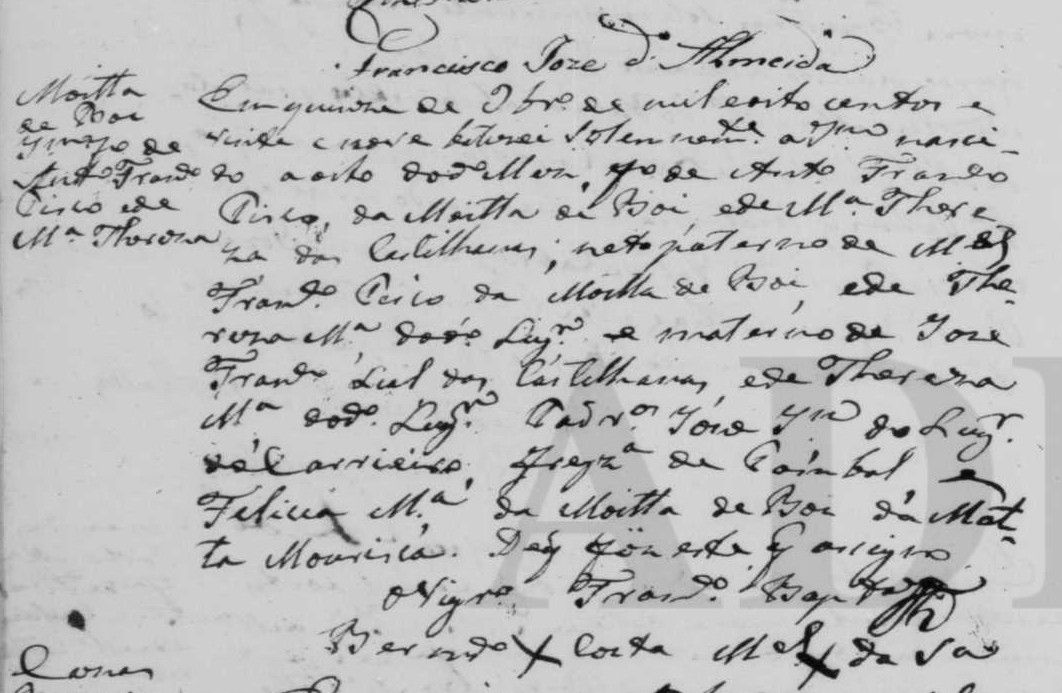 Francisco Joze d'Almeida
Moitta
de Boi
Jm fo de
Anto Franco
Pisco e de
Ma Thereza
Em quinze de 9bro de mil e oito centos e
vinte e nove batizei solemnemte a Jm nasci-
do a oito do do Mez, fo de Anto Franco
Pisco, da Moitta de Boi, e de Ma There
za das Castilhanas; neto paterno de Mel
Franco Pisco da Moitta de Boi, e de The-
reza Ma do do Lugr e materno de Joze
Franco Leal das Castilhanas, e de Thereza
Ma do do Lugr. Padros Joze Jm do Lugr.
de Carrieiro, Fregza de Pombal, e
Felicia Ma da Moitta de Boi da Mat-
ta Mourisca. De q fiz este q assigno
O Vigro Franco Bapta
Bernardo X Costa Mel X da Sa
Conas
ADL